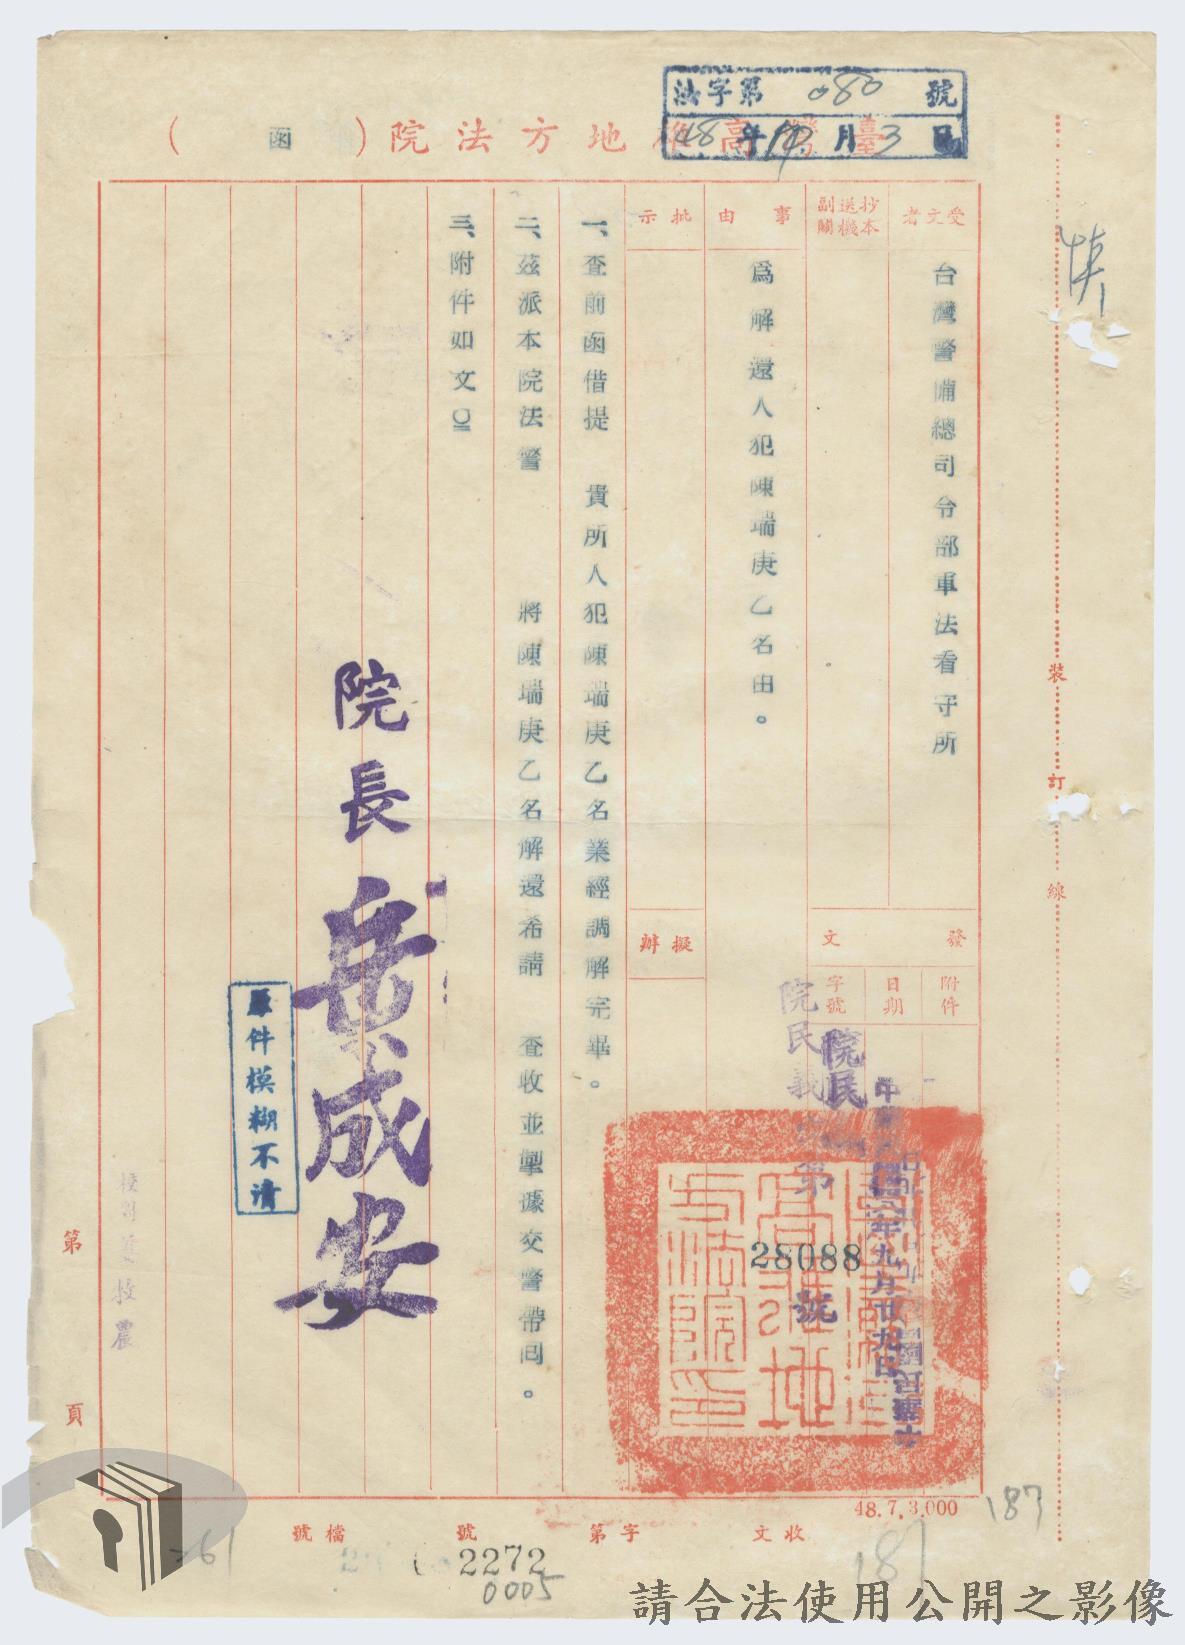 法字第080號
48年10月3日
臺灣高雄地方法院(函)
受文者
台灣警備總司令部軍法看守所
抄送副本機關
事由
為解還人犯陳瑞庚乙名由。
批示
擬辦
發文
附件
日期
中華民國四十八年九月廿九日
字號
院民
第28088號
一、查前函借提 貴所人犯陳瑞庚乙名業經調解完畢。
二、茲派本院法警 將陳瑞庚乙名解還希請 查收並掣據交警帶回。
三、附件如文
院長
成安
原件模糊不清
裝訂線
第頁
48.7.3.000
187
187
收文 字第 號 檔號
2272
0005
請合法使用公開之影像